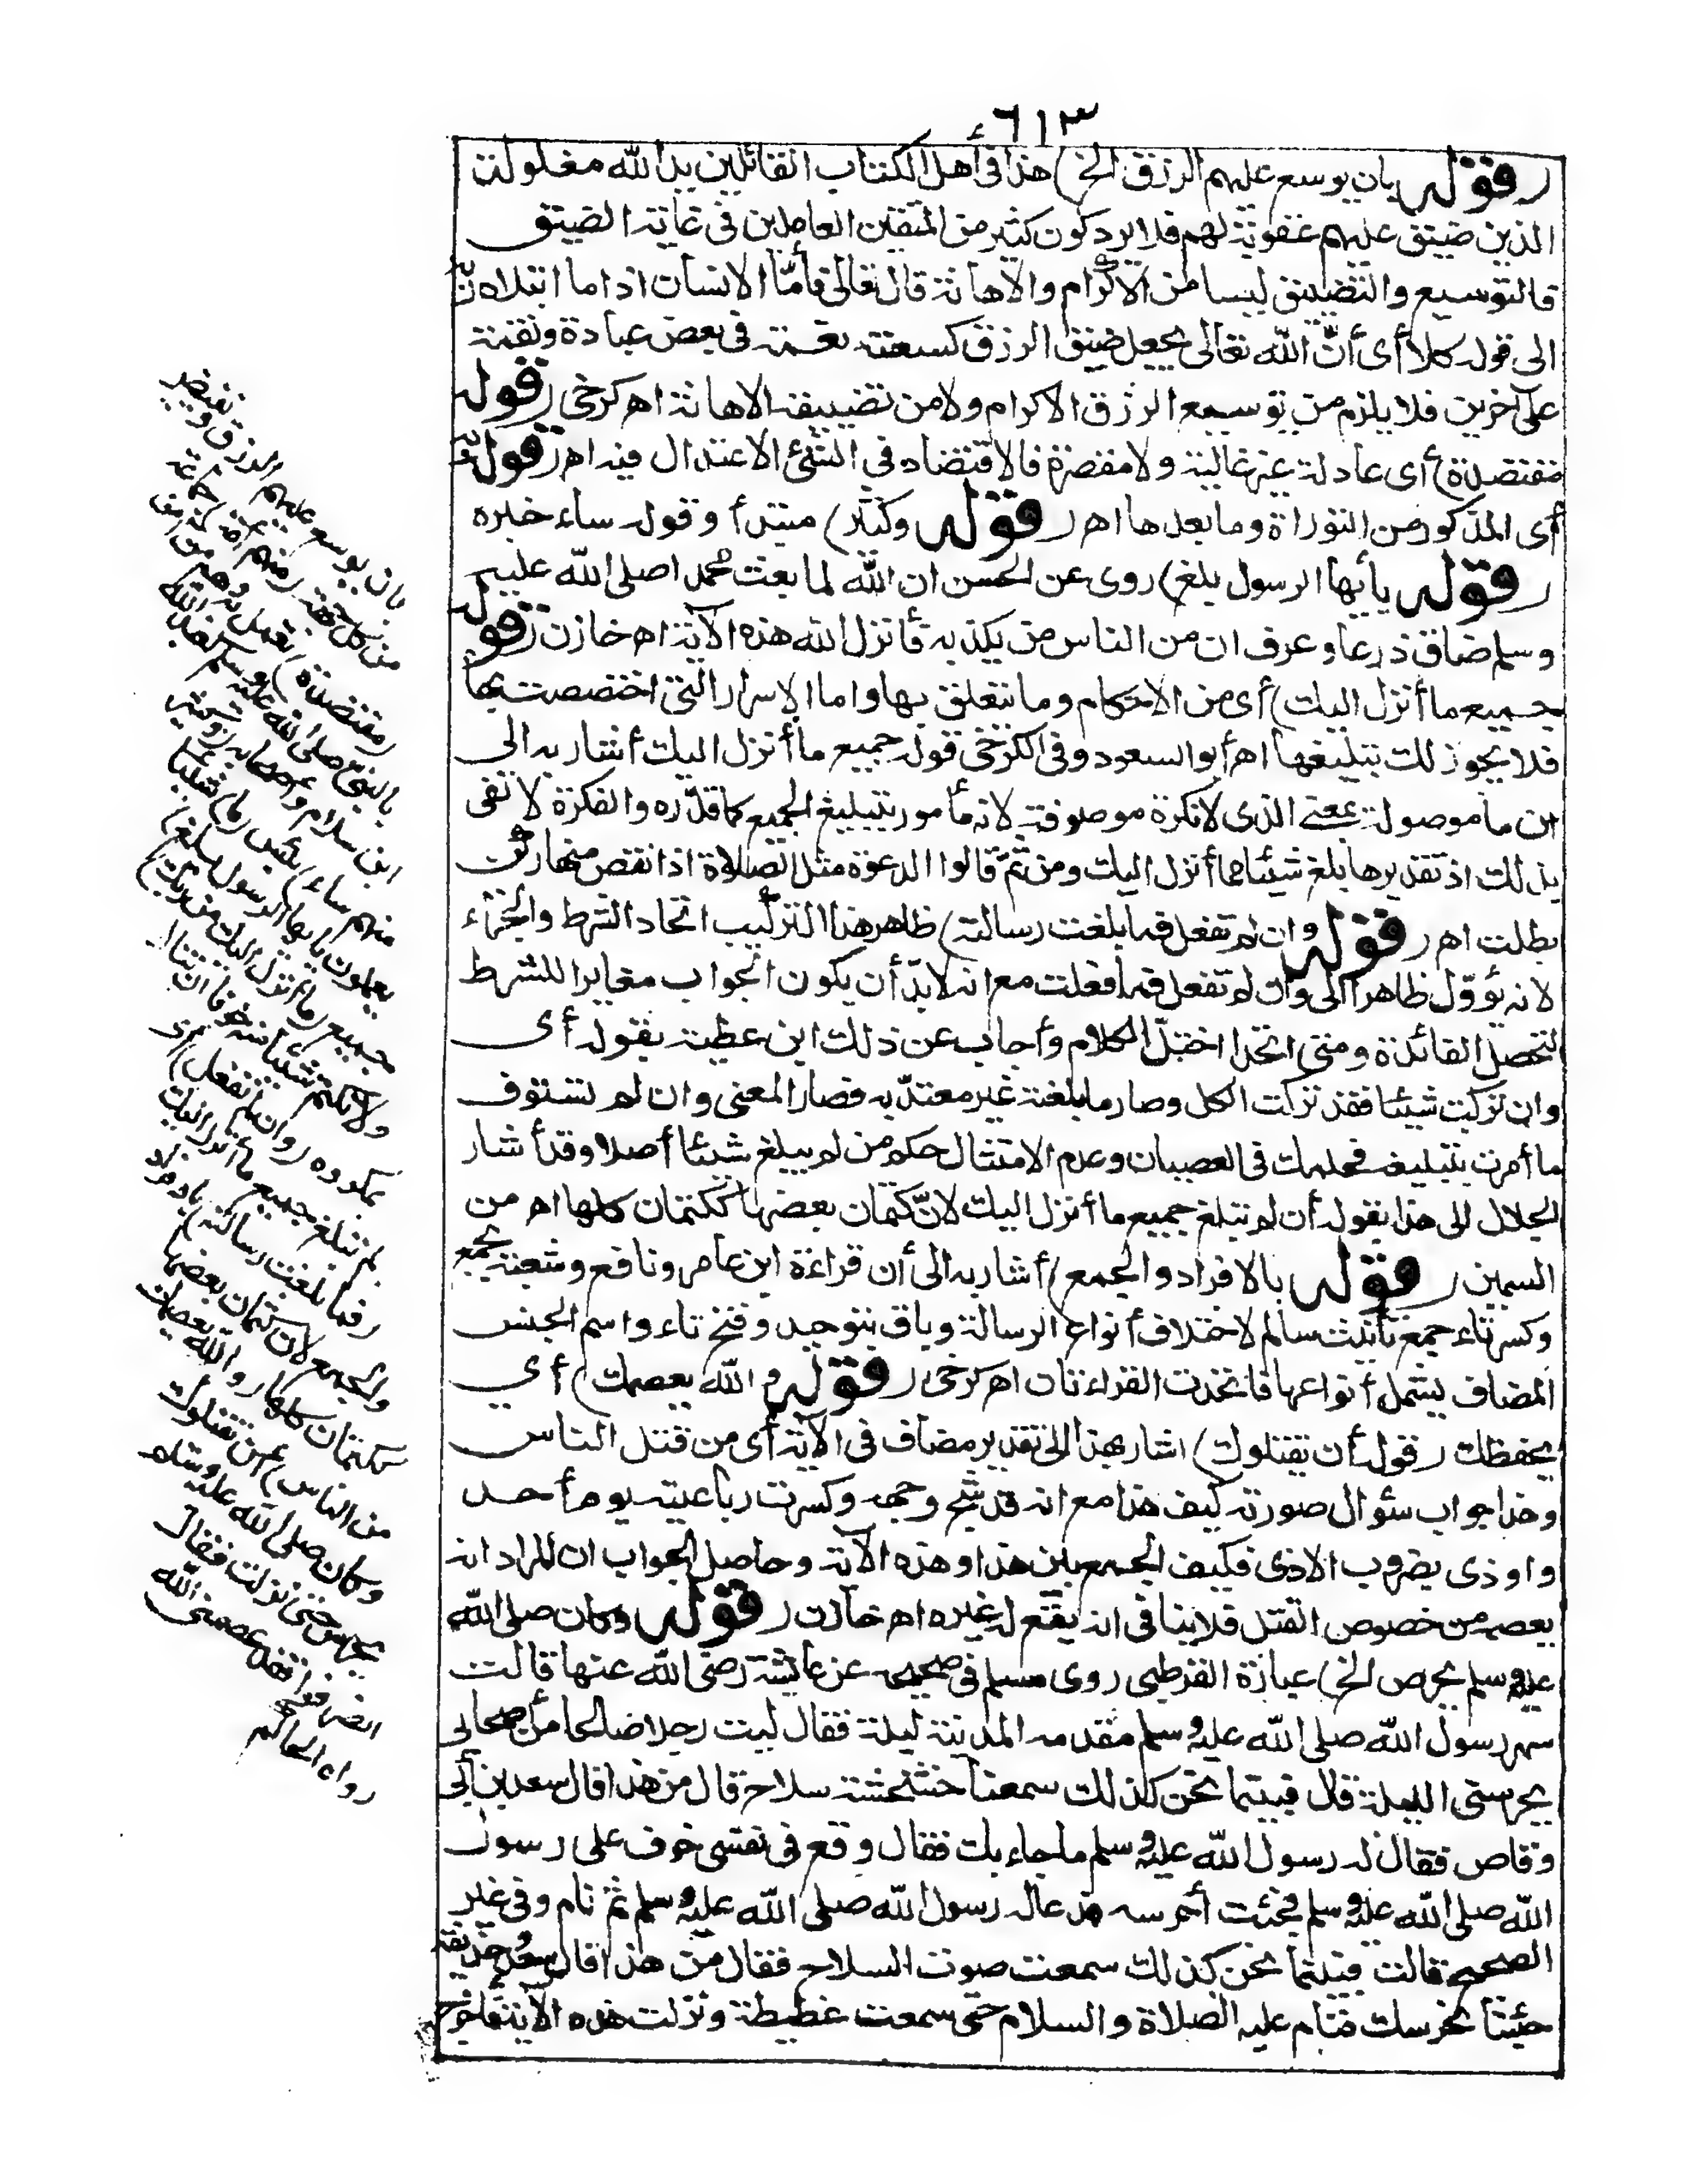 ٦١٣
(قوله بان يوسع عليهم الرزق الخ) هذا فى أهل الكتاب القائلين يد الله مغلولة
الذين ضيق عليهم عقوبة لهم فلا يرد كون كثير من المتقين العاملين فى غاية الضيق
فالتوسيع والتضييق ليسا من الاكرام والاهانة قال تعالى فأما الانسان اذا ما ابتلاه ربه
الى قوله كلا أى أنّ الله تعالى يجعل ضيق الرزق كسعته نعمة فى بعض عباده ونقمة
على آخرين فلا يلزم من توسيع الرزق الاكرام ولا من تضييقه الاهانة اهـ كرخى (قوله
مقتصدة) أى عادلة غير غالية ولا مقصرة فالاقتصاد فى الشئ الاعتدال فيه اهـ (قوله به
أى المذكور من التوراة وما بعدها اهـ (قوله وكثير) مبتدأ وقوله ساء خبره
(قوله يأيها الرسول بلغ) روى عن الحسن ان الله لما بعث محمدا صلى الله عليه
وسلم ضاق ذرعا وعرف ان من الناس من يكذبه فأنزل الله هذه الآية اهـ خازن (قوله
جميع ما أنزل اليك) أى من الاحكام وما يتعلق بها واما الاسرار التى اختصصت بها
فلا يجوز لك تبليغها اهـ أبو السعود وفى الكرخى قوله جميع ما أنزل اليك أشار به الى
ان ما موصولة بمعنى الذى لا نكرة موصوفة لانه مأمور بتبليغ الجميع كما قدّره والنكرة لا تفى
بذلك اذ تقديرها بلغ شيئا مما أنزل اليك ومن ثمّ قالوا الدعوة مثل الصلاة اذا نقص منها ركن
بطلت اهـ (قوله وان لم تفعل فما بلغت رسالته) ظاهر هذا التركيب اتحاد الشرط والجزاء
لانه يؤوّل ظاهرا الى وان لم تفعل فما فعلت مع انه لابدّ أن يكون الجواب مغايرا للشرط
لتحصل الفائدة ومتى اتحدا اختلّ الكلام وأجاب عن ذلك ابن عطية بقوله أى
وان تركت شيئا فقد تركت الكل وصار ما بلغته غير معتدّ به فصار المعنى وان لم تستوف
ما أمرت بتبليغه فحكمك فى العصيان وعدم الامتثال حكم من لم يبلغ شيئا أصلا وقد أشار
الجلال الى هذا بقوله أن لم تبلغ جميع ما أنزل اليك لانّ كتمان بعضها ككتمان كلها اهـ من
السمين (قوله بالافراد والجمع) أشار به الى أن قراءة ابن عامر ونافع وشعبة بجمع
وكسر تاء جمع تأنيث سالم لاختلاف أنواع الرسالة وباق بتوحيد وفتح تاء واسم الجنس
المضاف يشمل أنواعها فاتحدت القراءتان اهـ كرخى (قوله والله يعصمك) أي
يحفظك (قوله أن يقتلوك) اشار بهذا الى تقدير مضاف فى الآية أى من قتل الناس
وهذا جواب سؤال صورته كيف هذا مع انه قد شج وجهه وكسرت رباعيته يوم أحد
واوذى بضروب الاذى فكيف الجمع بين هذا وهذه الآية وحاصل الجواب ان المراد انه
يعصمه من خصوص القتل فلا ينافى انه يقع له غيره اهـ خازن (قوله وكان صلى الله
عليه وسلم يحرس الخ) عبارة القرطبى روى مسلم فى صحيحه عن عائشة رضى الله عنها قالت
سهر رسول الله صلى الله عليه وسلم مقدمه المدينة ليلة فقال ليت رجلا صالحا من أصحابى
يحرسنى الليلة قال فبينما نحن كذلك سمعنا خشخشة سلاح قال من هذا قال سعد بن أبى
وقاص فقال له رسول الله عليه وسلم ما جاء بك فقال وقع فى نفسى خوف على رسول
الله صلى الله عليه وسلم فجئت أحرسه فدعا له رسول الله صلى الله عليه وسلم ثم نام وفى غير
الصحيح قالت فبينما نحن كذلك سمعت صوت السلاح فقال من هذا قال سعد وحذيفة
جئنا نحرسك فنام عليه الصلاة والسلام حتى سمعت غطيطه ونزلت هذه الآية فأخرج
بان يوسع عليهم الرزق ويفيض
من كل جهة (منهم أمة) جماعة
(مقتصدة) تعمل به وهم من آمن
بالنبىّ صلى الله عليه وسلم كعبد الله
ابن سلام وأصحابه (وكثير
منهم ساء) بئس (ما) شيئا
يعملون يأيها الرسول بلغ)
جميع (ما أنزل اليك من ربك)
ولا تكتم شيئا منه خوفا ان تنال
بمكروه (وان لم تفعل) أى
لم تبلغ جميع ما أنزل اليك
(فما بلغت رسالته) بالافراد
والجمع لان كتمان بعضها
ككتمان كلها (والله يعصمك
من الناس) أن يقتلوك
وكان صلى الله عليه وسلم
يحرس حتى نزلت فقال
انصرفوا فقد عصمنى الله
رواه الحاكم